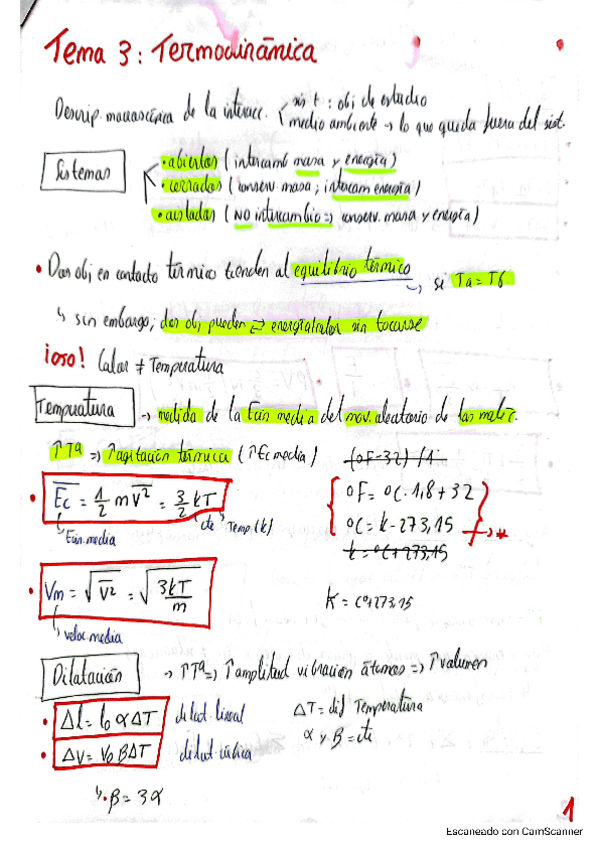 Tema 3: Termodinámica
Descrip. macroscópica de la interacc. sist: obj de estudio
medio ambiente → lo que queda fuera del sist.
Sistemas
• abiertos (intercamb masa y energía)
• cerrados (conserv. masa; intercam energía)
• aislados (NO intercambio => conserv. masa y energía)
• Dos obj en contacto térmico tienden al equilibrio térmico
↳ si Ta = Tb
↳ sin embargo; dos obj pueden ⇄ energía/calor sin tocarse
¡oso! Calor ≠ Temperatura
Temperatura → medida de la Ecin media del mov. aleatorio de las moléc.
↑Tª => ↑agitación térmica (↑Ec media)
(ºF-32)/1
• Ec = 1/2 m v² = 3/2 kT
↳ Ecin. media
cte Temp. (k)
ºF = ºC·1,8+32
ºC = k - 273,15 → *
k = ºC+273,15
• Vm = √v² = √3kT/m
↳ veloc. media
K = Cº+273,15
Dilatación → ↑Tª => ↑amplitud vibración átomos => ↑volumen
• Δl = l₀ α ΔT dilat. lineal
ΔT = dif Temperatura
α y β = cte
• ΔV = V₀ β ΔT dilat. cúbica
↳ • β = 3α
1
Escaneado con CamScanner